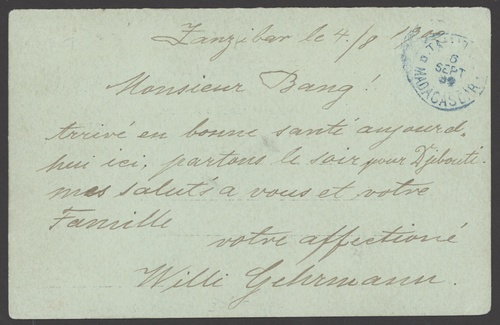 Zanzibar le 4/8 1900
6
SEPT
MADAGASCAR
Monsieur Bang!
Arrivé en bonne santé aujourd-
hui ici, partons le soir pour Djibouti.
mes saluts a vous et votre
Famille
votre affectioné
Willi Gehrmann.